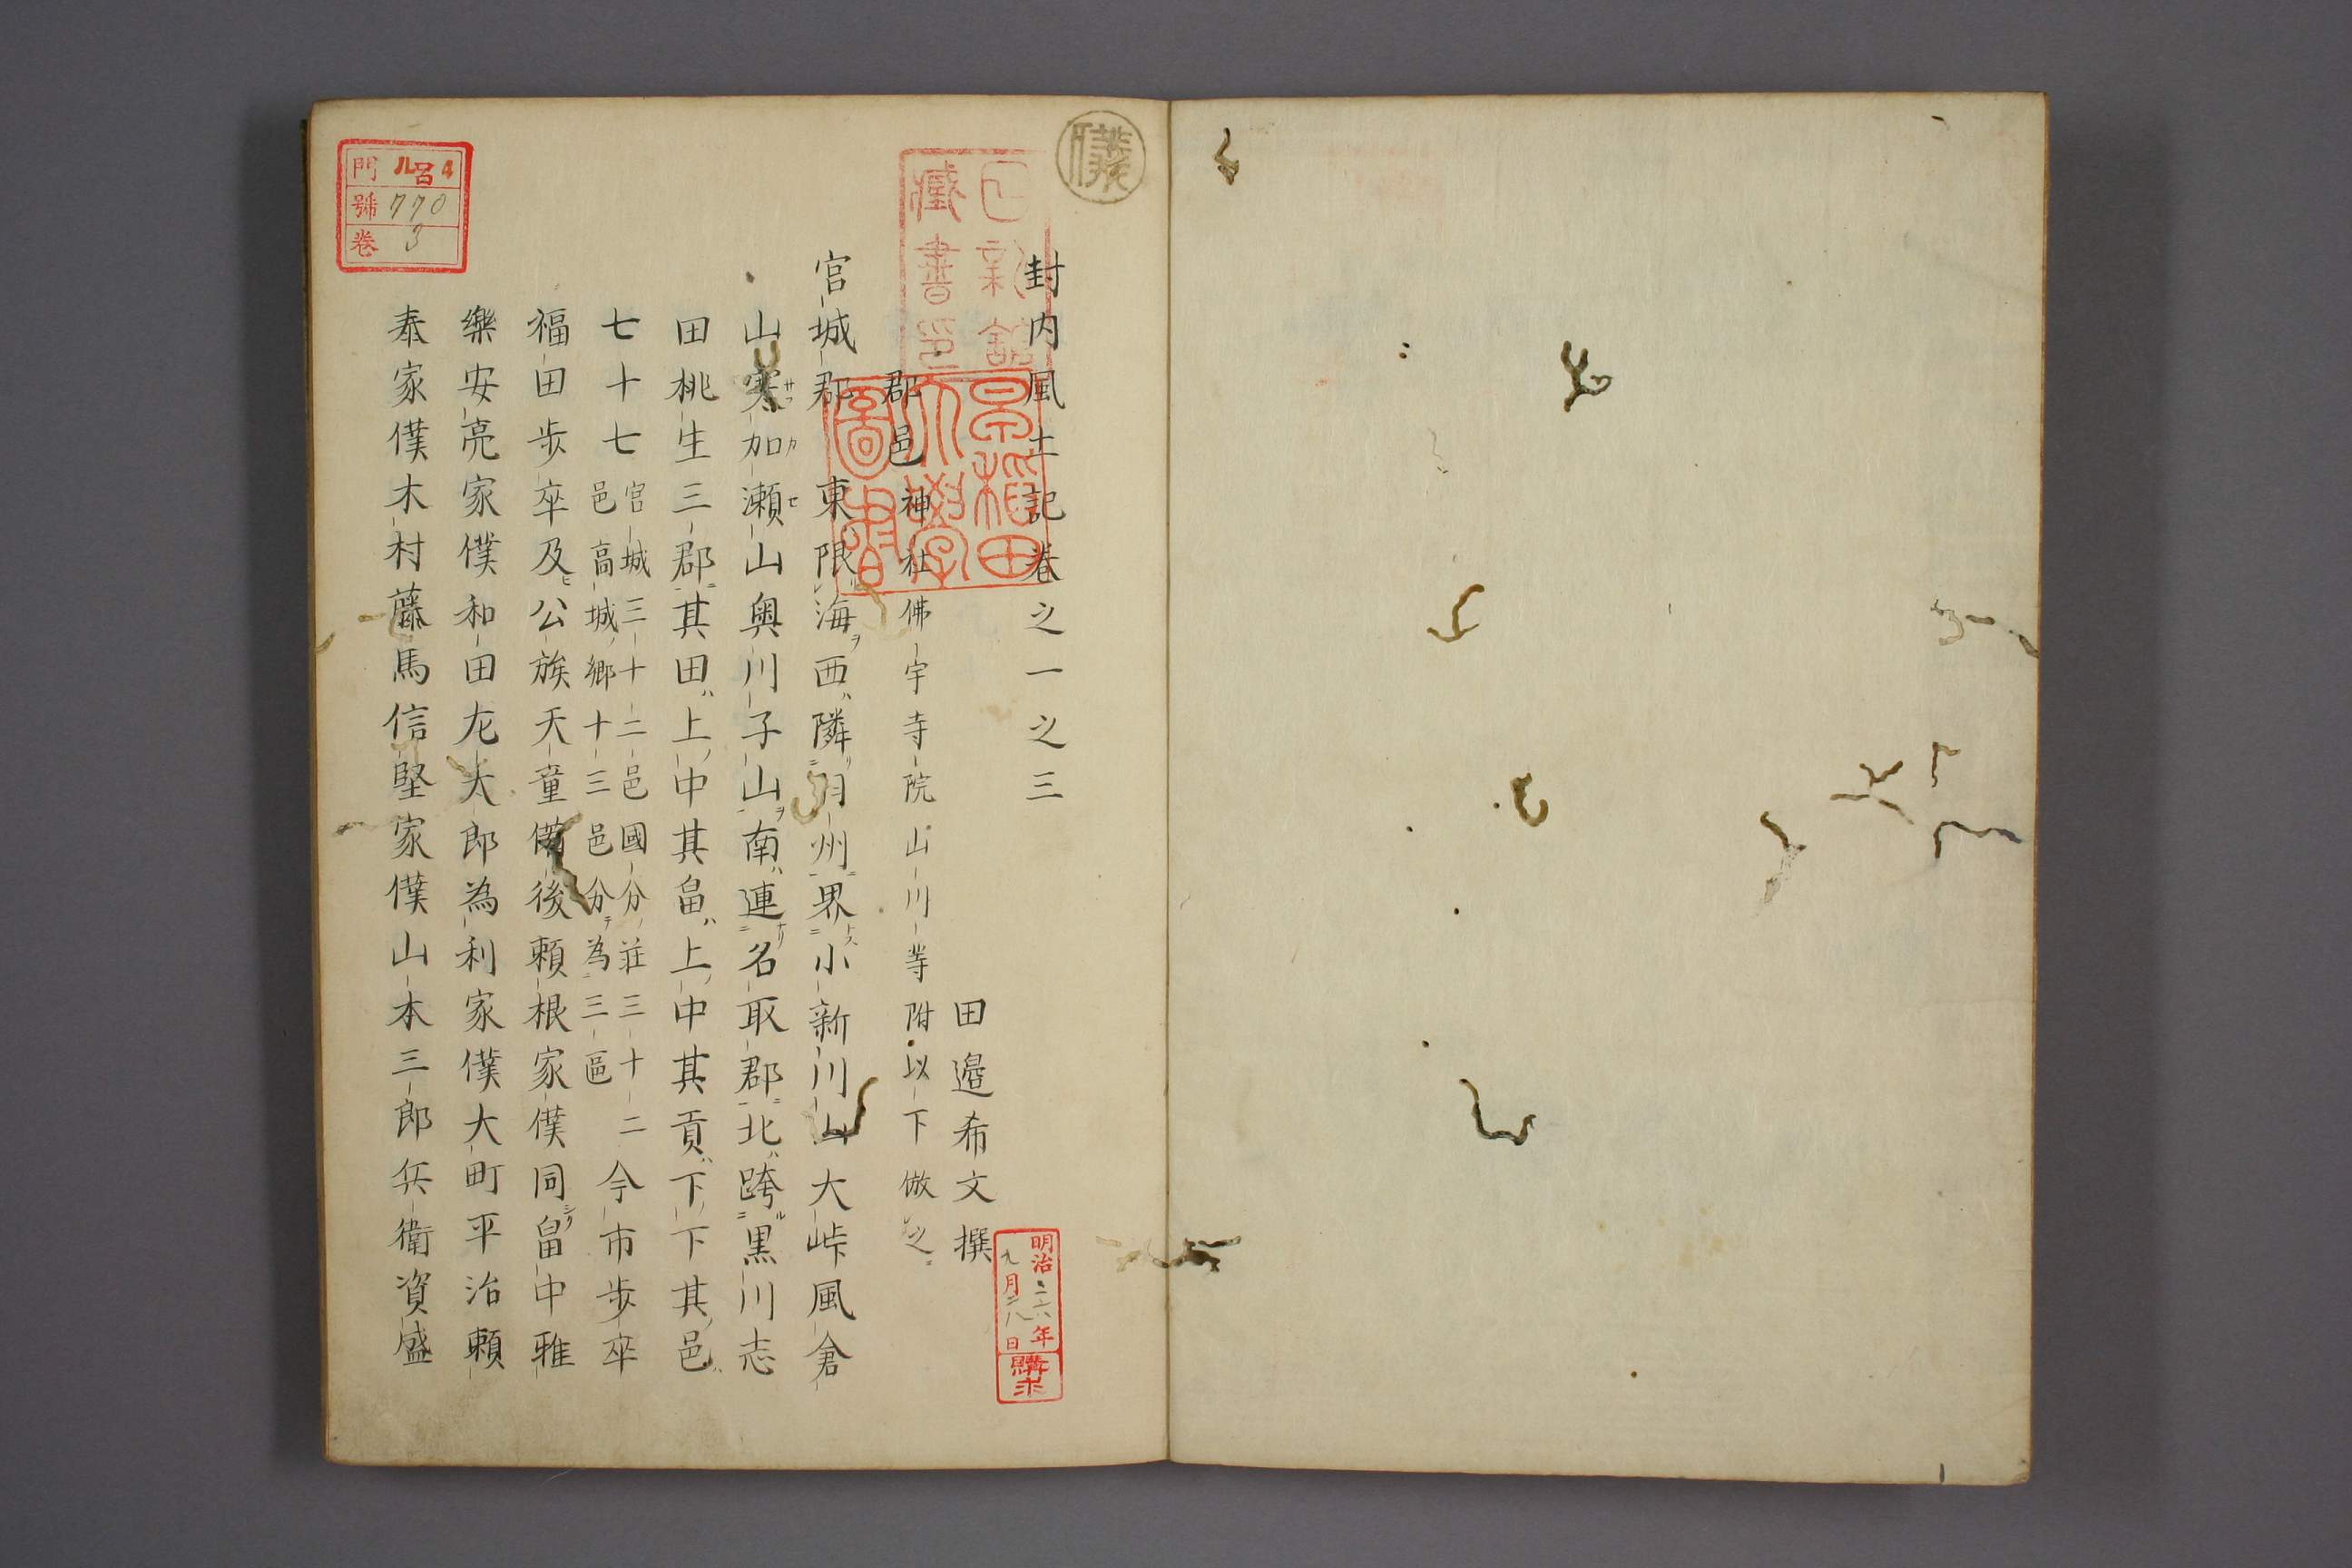 封内風土記卷之一之三
田邉希文撰
郡邑神社佛宇寺院山川等附以下倣之
宮城郡東限海西隣羽州界小新川山大峠風倉
山寒加瀬山奥川子山南連名取郡北跨黒川志
田桃生三郡其田上中其畠上中其貢下下其邑
七十七宮城三十二邑國分莊三十二
邑高城郷十三邑分為三區今市歩卒
福田歩卒及公族天童備後頼根家僕同畠中雅
樂安亮家僕和田尨大郎為利家僕大町平治頼
泰家僕木村藤馬信堅家僕山本三郎兵衛資盛
藏書印
早稲田大學圖書
明治三六年
九月二八日
購求
門 ル呂4
號 770
卷 3